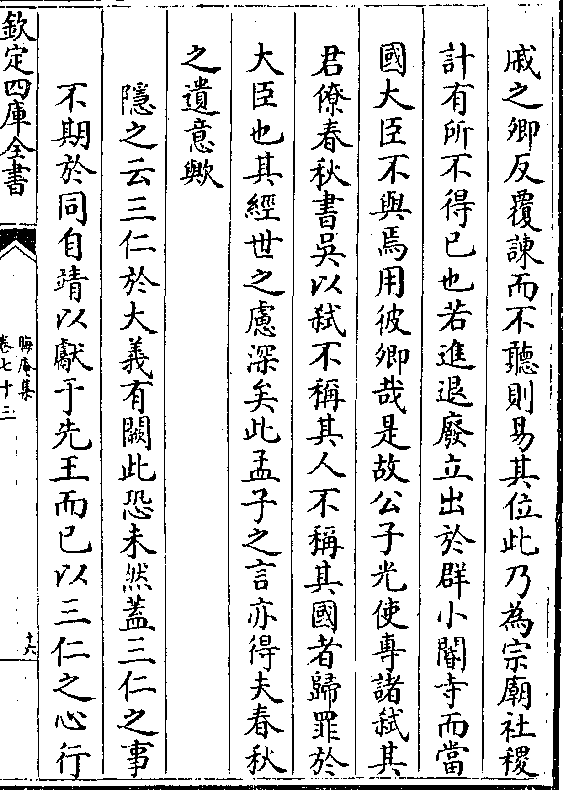 戚之卿反覆諫而不聽則易其位此乃為宗廟社稷
計有所不得已也若進退廢立出於群小閽寺而當
國大臣不與焉用彼卿哉是故公子光使專諸弑其
君僚春秋書吳以弑不稱其人不稱其國者歸罪於
大臣也其經世之慮深矣此孟子之言亦得夫春秋
之遺意歟
隱之云三仁於大義有闕此恐未然蓋三仁之事
不期於同自靖以獻于先王而已以三仁之心行
欽定四庫全書
晦庵集
卷七十三
十六